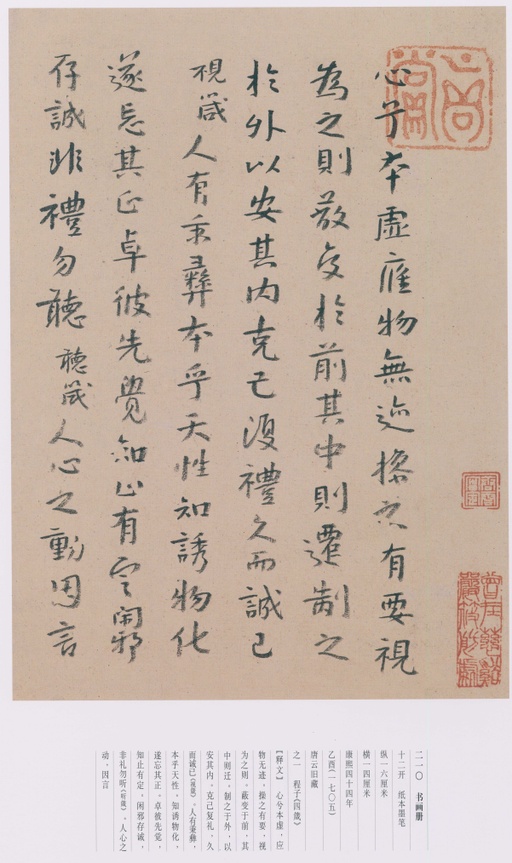 心兮本虛應物無迹操之有要視
為之則蔽交於前其中則遷制之
於外以安其内克己復禮久而誠已
視箴人有秉彝本乎天性知誘物化
遂忘其正卓彼先覺知止有定閑邪
存誠非禮勿聽聽箴人心之動因言
二一〇 书画册
十二开 纸本墨笔
纵一六厘米
横一四厘米
康熙四十四年
乙酉(一七〇五)
唐云旧藏
之一 程子[四箴]
[释文] 心兮本虚,应
物无迹,操之有要,视
为之则。蔽交于前,其
中则迁,制之于外,以
安其内。克己复礼,久
而诚已(视箴)。人有秉彝,
本乎天性。知诱物化,
遂忘其正。卓彼先觉,
知止有定。闲邪存诚,
非礼勿听(听箴)。人心之
动,因言